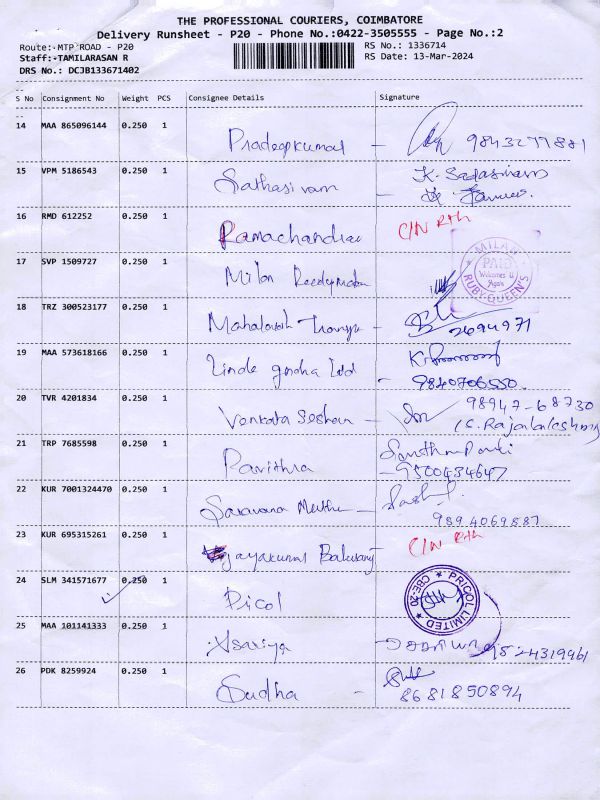 THE PROFESSIONAL COURIERS, COIMBATORE
Delivery Runsheet - P20 - Phone No.:0422-3505555 - Page No.:2
Route:-MTP ROAD - P20
RS No.: 1336714
Staff:-TAMILARASAN R
RS Date: 13-Mar-2024
DRS No.: DCJB133671402
S No Consignment No Weight PCS Consignee Details Signature
14 MAA 865096144 0.250 1 Pradeepkumar - 9843277881
15 VPM 5186543 0.250 1 Sathasivam - K. Sadasivam
16 RMD 612252 0.250 1 Ramachandran C/N Rtn
17 SVP 1509727 0.250 1 Milan MILAN PAID Welcomes U Again RUBY QUEEN'S
18 TRZ 300523177 0.250 1 Mahalaxmi - 2694971
19 MAA 573618166 0.250 1 Linde India Ltd - 9840706550
20 TVR 4201834 0.250 1 Venkata Seshan - 98947-68730
21 TRP 7685598 0.250 1 Pavithra - 9500434647
22 KUR 7001324470 0.250 1 Saravana Muthu - 9894069887
23 KUR 695315261 0.250 1 C/N Rtn
24 SLM 341571677 0.250 1 Pricol PRICOL LIMITED CBE-20
25 MAA 101141333 0.250 1
26 PDK 8259924 0.250 1 Sudha - 8681850894